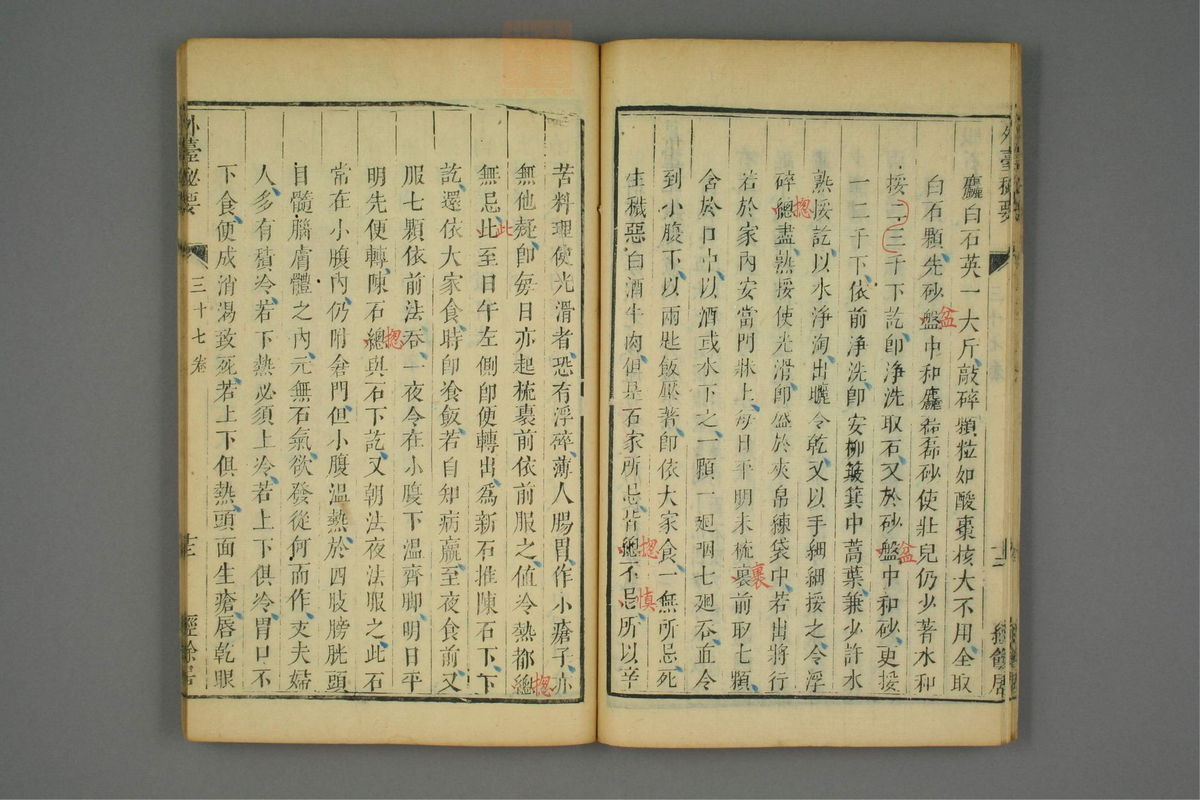 外臺秘要 十二 經餘居
麤白石英一大斤敲碎顆粒如酸棗核大不用全取
白石顆先砂盤中和麤稀砂使壯兒仍少著水和
盆
挼二三千下訖卽淨洗取石又於砂盤中和砂更挼
盆
一二千下依前淨洗卽安柳簸箕中蒿葉兼少許水
熟挼訖以水淨淘出曬令乾又以手細細挼之令浮
碎總盡熟挼使光滑卽盛於夾帛練袋中若出將行
揔
若於家內安當門牀上每日平明未梳裹前取七顆
裹
含於口中以酒或水下之一顆一廻咽七廻吞直令
到小腹下以兩匙飯壓著卽依大家食一無所忌死
生穢惡白酒牛肉但是石家所忌皆總不忌所以辛
揔
慎
苦料理使光滑者恐有浮碎薄人腸胃作小瘡子亦
無他疑卽每日亦起梳裹前依前服之値冷熱都總
揔
無忌此至日午左側卽便轉出爲新石推陳石下下
此
訖還依大家食時卽飱飯若自知病麤至夜食前又
服七顆依前法吞一夜令在小腹下溫齊脚明日平
明先便轉陳石總與石下訖又朝法夜法服之此石
揔
常在小腹內仍附倉門但小腹溫熱於四肢膀胱頭
目髓腦膚體之內元無石氣欲發從何而作夫夫婦
人多有積冷若下熱必須上冷若上下俱冷胃口不
下食便成消渴致死若上下俱熱頭面生瘡唇乾眼
外臺秘要 三十七卷 十三 經餘居